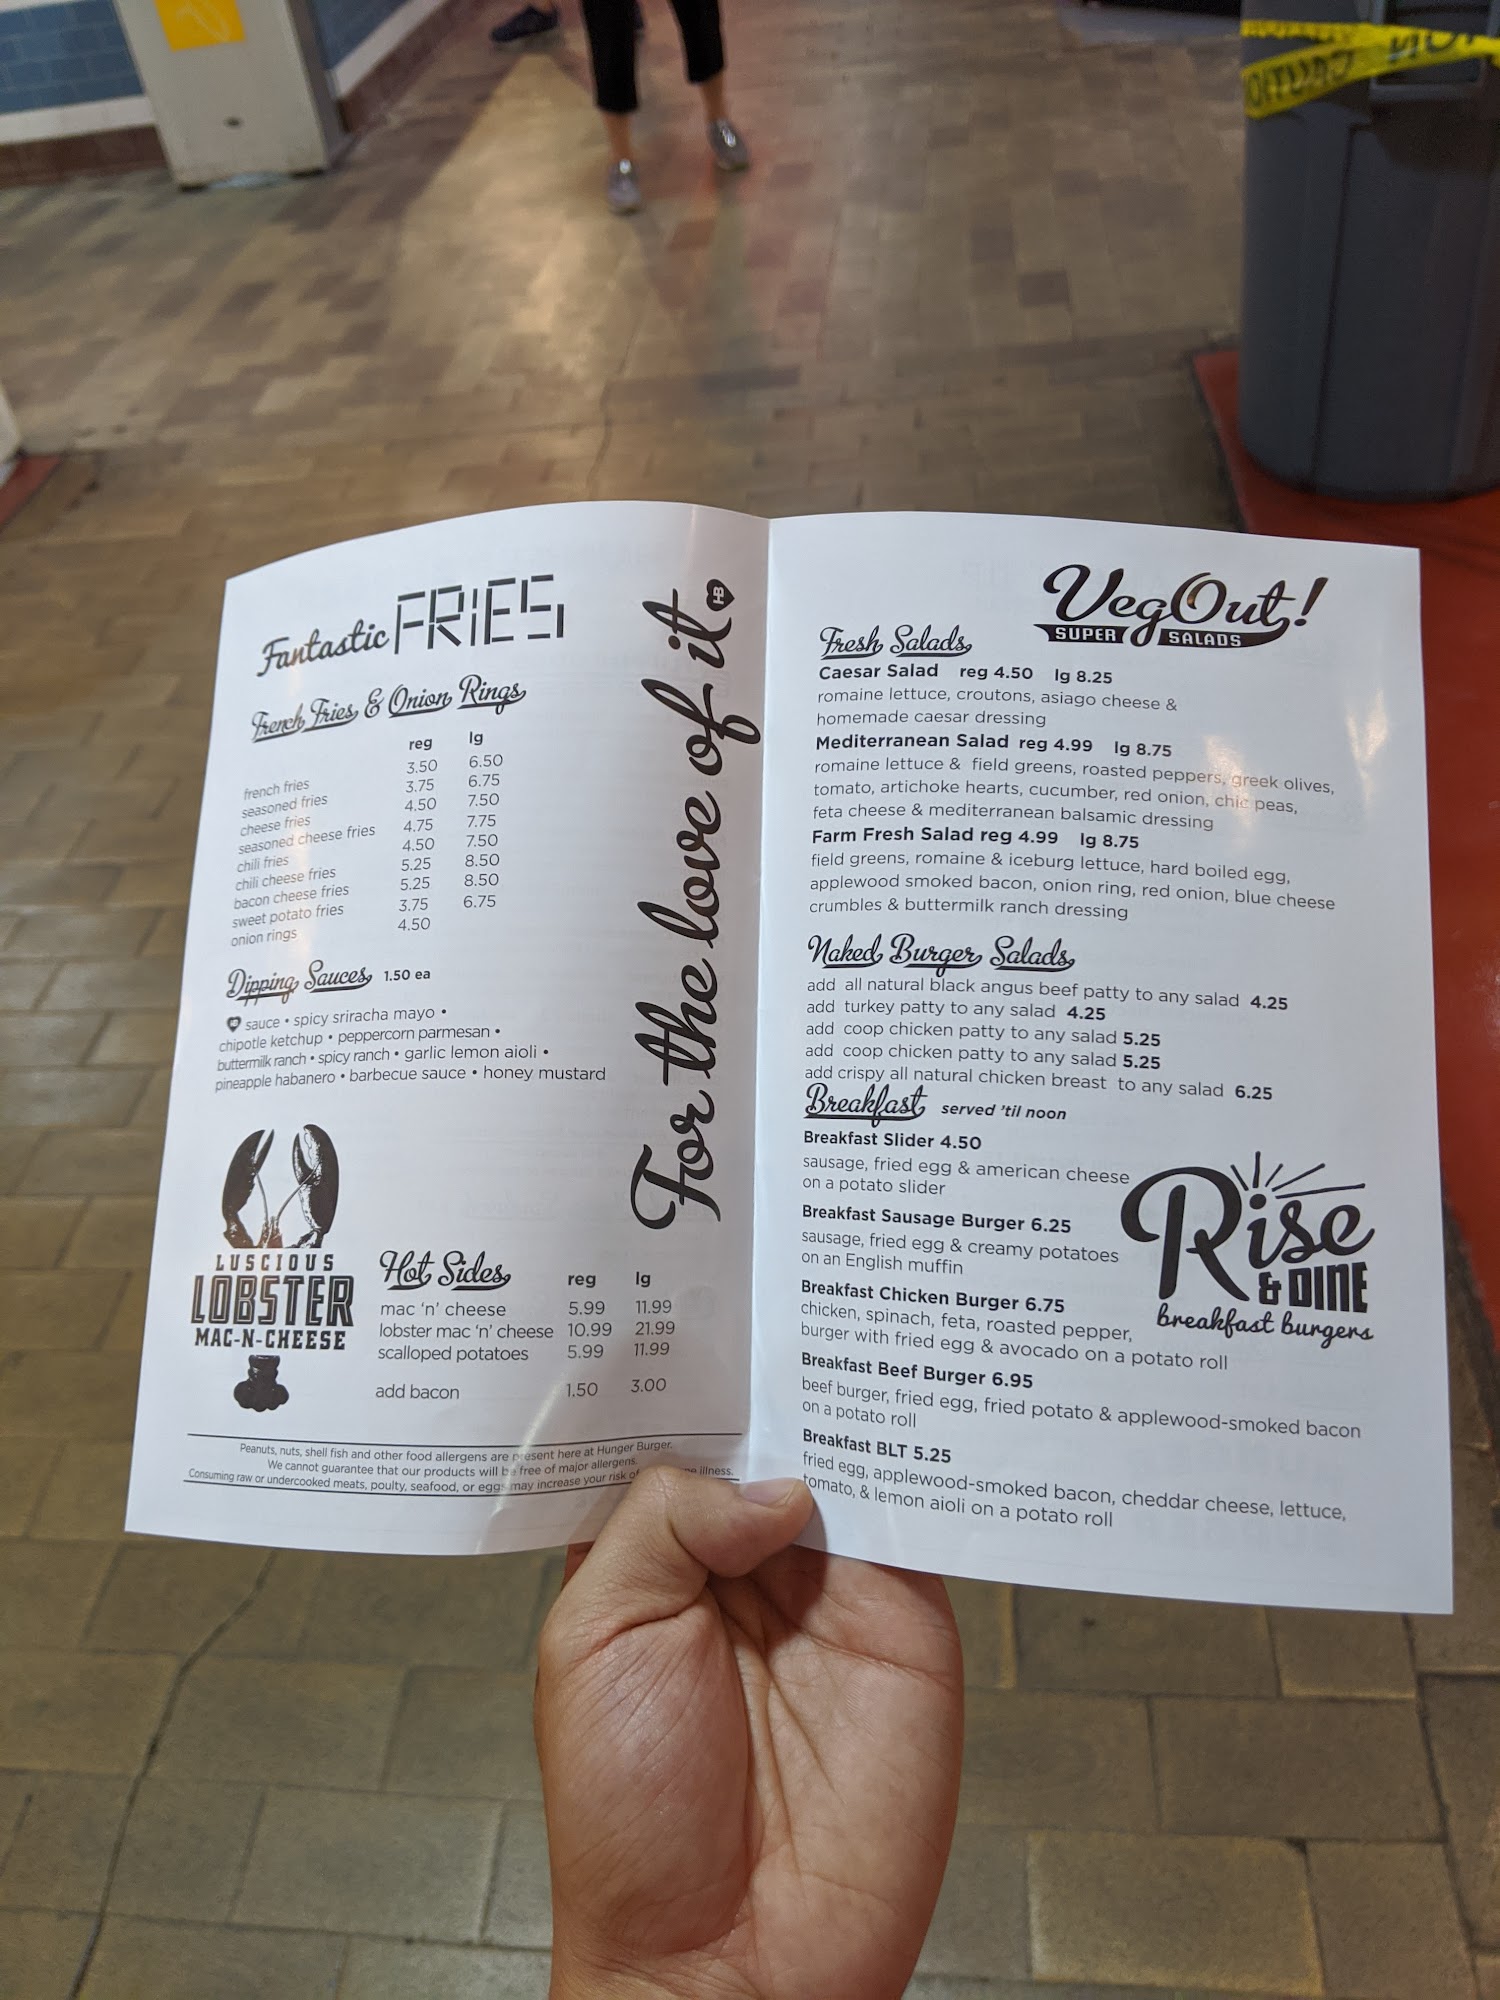 Fantastic FRIES
French Fries & Onion Rings
reg lg
french fries 3.50 6.50
seasoned fries 3.75 6.75
cheese fries 4.50 7.50
seasoned cheese fries 4.75 7.75
chili fries 4.50 7.50
chili cheese fries 5.25 8.50
bacon cheese fries 5.25 8.50
sweet potato fries 3.75 6.75
onion rings 4.50
Dipping Sauces 1.50 ea
sauce • spicy sriracha mayo •
chipotle ketchup • peppercorn parmesan •
buttermilk ranch • spicy ranch • garlic lemon aioli •
pineapple habanero • barbecue sauce • honey mustard
LUSCIOUS
LOBSTER
MAC-N-CHEESE
Hot Sides reg lg
mac 'n' cheese 5.99 11.99
lobster mac 'n' cheese 10.99 21.99
scalloped potatoes 5.99 11.99
add bacon 1.50 3.00
Peanuts, nuts, shell fish and other food allergens are present here at Hunger Burger.
We cannot guarantee that our products will be free of major allergens.
Consuming raw or undercooked meats, poulty, seafood, or eggs may increase your risk of illness.
For the love of it HB
VegOut!
SUPER SALADS
Fresh Salads
Caesar Salad reg 4.50 lg 8.25
romaine lettuce, croutons, asiago cheese &
homemade caesar dressing
Mediterranean Salad reg 4.99 lg 8.75
romaine lettuce & field greens, roasted peppers, greek olives,
tomato, artichoke hearts, cucumber, red onion, chic peas,
feta cheese & mediterranean balsamic dressing
Farm Fresh Salad reg 4.99 lg 8.75
field greens, romaine & iceburg lettuce, hard boiled egg,
applewood smoked bacon, onion ring, red onion, blue cheese
crumbles & buttermilk ranch dressing
Naked Burger Salads
add all natural black angus beef patty to any salad 4.25
add turkey patty to any salad 4.25
add coop chicken patty to any salad 5.25
add coop chicken patty to any salad 5.25
add crispy all natural chicken breast to any salad 6.25
Breakfast served 'til noon
Breakfast Slider 4.50
sausage, fried egg & american cheese
on a potato slider
Breakfast Sausage Burger 6.25
sausage, fried egg & creamy potatoes
on an English muffin
Breakfast Chicken Burger 6.75
chicken, spinach, feta, roasted pepper,
burger with fried egg & avocado on a potato roll
Breakfast Beef Burger 6.95
beef burger, fried egg, fried potato & applewood-smoked bacon
on a potato roll
Breakfast BLT 5.25
fried egg, applewood-smoked bacon, cheddar cheese, lettuce,
tomato, & lemon aioli on a potato roll
Rise
& DINE
breakfast burgers
CAUTION